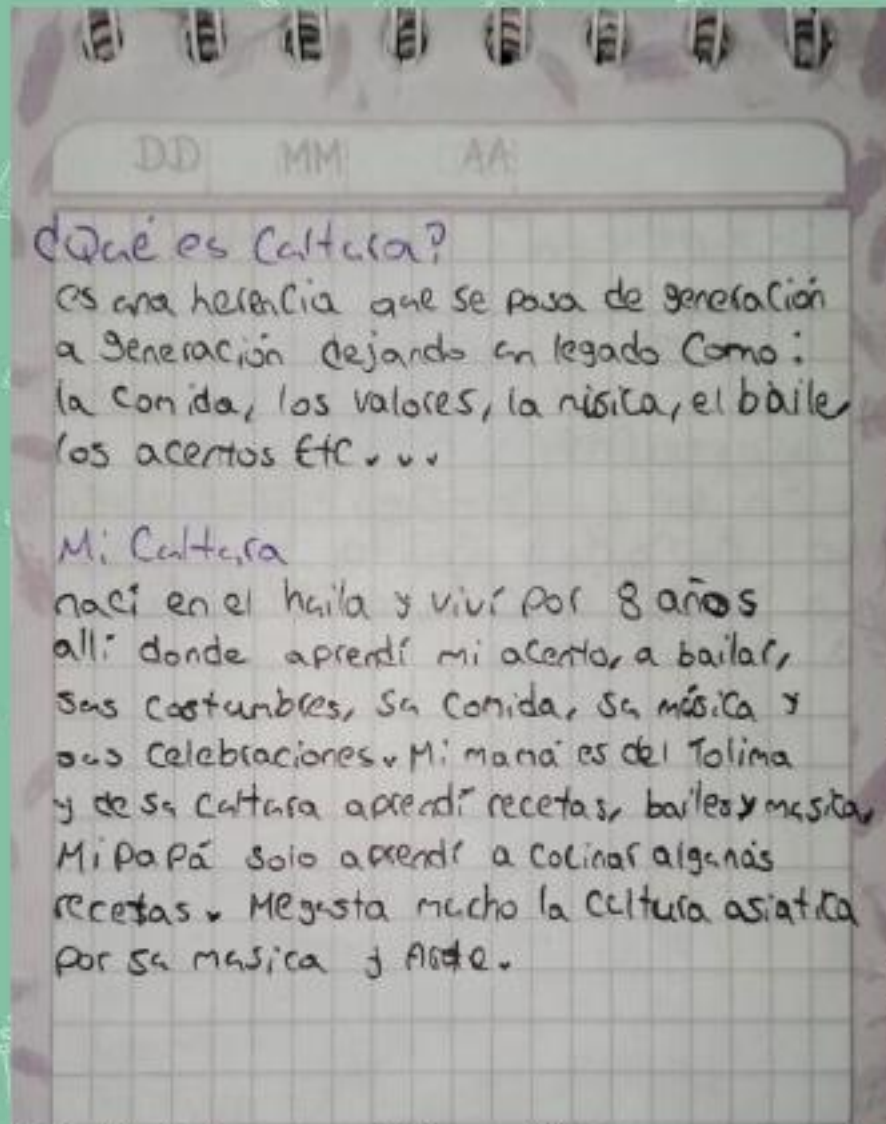 DD MM AA
¿Qué es Cultura?
es una herencia que se pasa de generación
a generación dejando un legado Como:
la comida, los valores, la música, el baile,
los acentos Etc...
Mi Cultura
nací en el huila y viví por 8 años
allí donde aprendí mi acento, a bailar,
sus costumbres, su comida, su música y
sus celebraciones. Mi mamá es del Tolima
y de su cultura aprendí recetas, bailes y musica,
Mi papá solo aprendí a cocinar algunas
recetas. Me gusta mucho la cultura asiatica
por su musica y Arte.